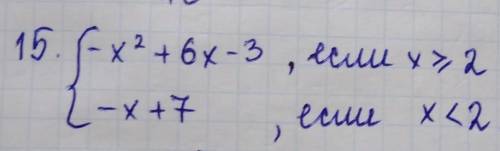 15. { -x² + 6x - 3 , если x ⩾ 2
-x + 7 , если x < 2